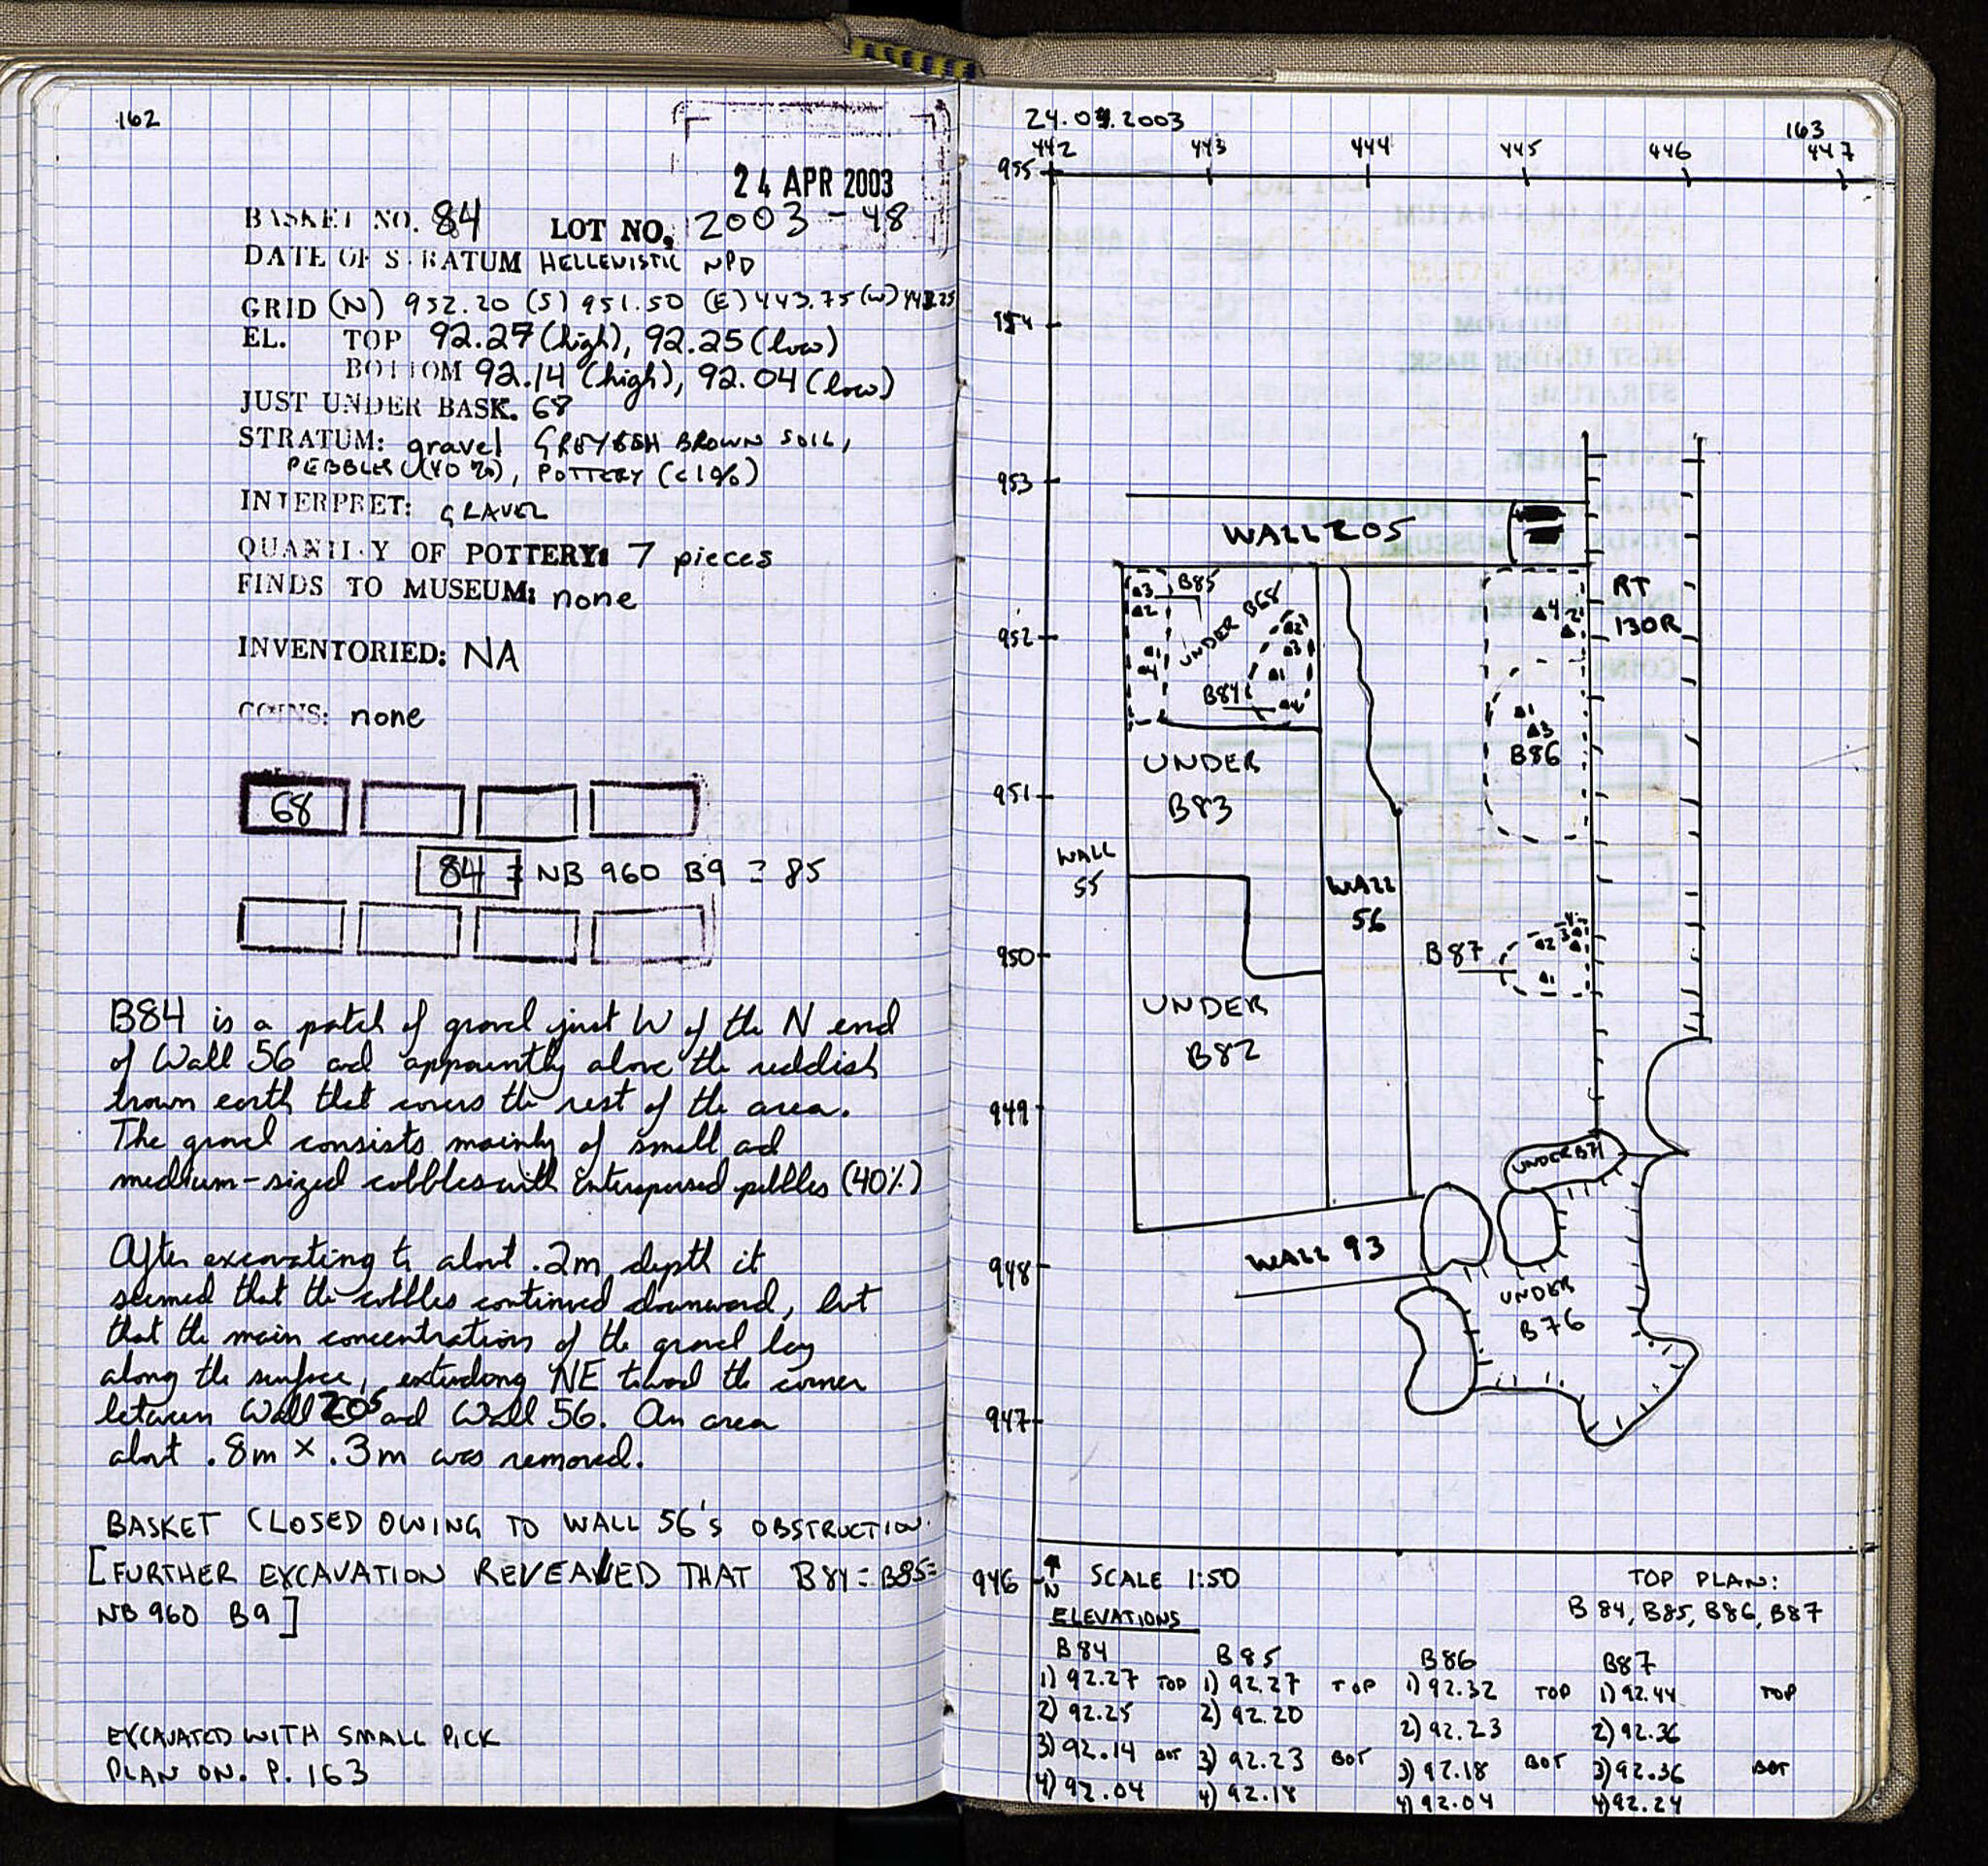 162
24 APR 2003
BASKET NO. 84 LOT NO. 2003-48
DATE OF STRATUM HELLENISTIC NPD
GRID (N) 952.20 (S) 951.50 (E) 443.75 (W)
EL. TOP 92.27 (high), 92.25 (low)
BOTTOM 92.14 (high), 92.04 (low)
JUST UNDER BASK. 68
STRATUM: gravel GREYISH BROWN SOIL,
PEBBLES (40%), POTTERY (<1%)
INTERPRET: GRAVEL
QUANTITY OF POTTERY: 7 pieces
FINDS TO MUSEUM: none
INVENTORIED: NA
COINS: none
68
84 = NB 960 B9 = 85
B84 is a patch of gravel just W of the N end
of Wall 56 and apparently above the reddish
brown earth that covers the rest of the area.
The gravel consists mainly of small and
medium-sized cobbles with interspersed pebbles (40%)
After excavating to about .2m depth it
seemed that the cobbles continued downward, but
that the main concentration of the gravel lay
along the surface, extending NE toward the corner
between Wall 205 and Wall 56. An area
about .8m × .3m was removed.
BASKET CLOSED OWING TO WALL 56's OBSTRUCTION.
[FURTHER EXCAVATION REVEALED THAT B84 = B85 =
NB 960 B9]
EXCAVATED WITH SMALL PICK
PLAN ON. P. 163
24.04.2003
163
442 443 444 445 446 447
955
954
953
WALL 205
B85
UNDER B68
RT
130R
Δ3
Δ2
Δ1
Δ4
Δ2
Δ3
Δ1
Δ4
Δ4 2
952
B84
Δ1
Δ3
B86
UNDER
B83
951
WALL
55
WALL
56
B87
Δ2
Δ1
950
UNDER
B82
949
UNDER B71
WALL 93
948
UNDER
B76
947
946
N
SCALE 1:50
TOP PLAN:
B84, B85, B86, B87
ELEVATIONS
B84 B85 B86 B87
1) 92.27 TOP 1) 92.27 TOP 1) 92.32 TOP 1) 92.44 TOP
2) 92.25 2) 92.20 2) 92.23 2) 92.36
3) 92.14 BOT 3) 92.23 BOT 3) 92.18 BOT 3) 92.36 BOT
4) 92.04 4) 92.18 4) 92.04 4) 92.24